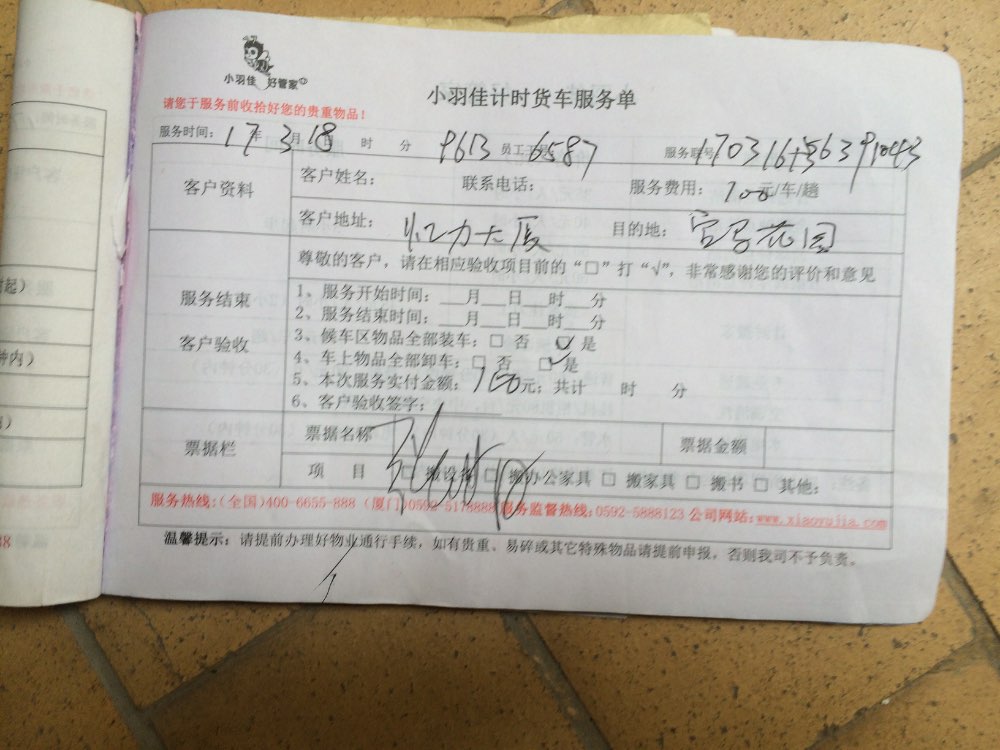 小羽佳 好管家
小羽佳计时货车服务单
请您于服务前收拾好您的贵重物品！
服务时间：17年3月18日 时 分 9613 员工工号：6587 服务联号
客户资料 客户姓名： 联系电话： 服务费用：100元/车/趟
客户地址： 力大厦 目的地： 花园
服务结束
客户验收
尊敬的客户，请在相应验收项目前的“□”打“√”，非常感谢您的评价和意见
1、服务开始时间：___月___日___时___分
2、服务结束时间：___月___日___时___分
3、候车区物品全部装车：□ 否 ☑ 是
4、车上物品全部卸车：□ 否 ☑ 是
5、本次服务实付金额：100元；共计 时 分
6、客户验收签字：
票据栏 票据名称 票据金额
项 目 □ 搬设备 □ 搬办公家具 □ 搬家具 □ 搬书 □ 其他：
服务热线：(全国)400-6655-888 (厦门)0592-5178888 服务监督热线：0592-5888123 公司网站：www.xiaoyujia.com
温馨提示：请提前办理好物业通行手续，如有贵重、易碎或其它特殊物品请提前申报，否则我司不予负责。
钟内）